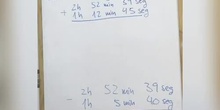 2h 52 min 39 seg
+ 1h 12 min 45 seg
2h 52 min 39 seg
- 1h 5 min 40 seg